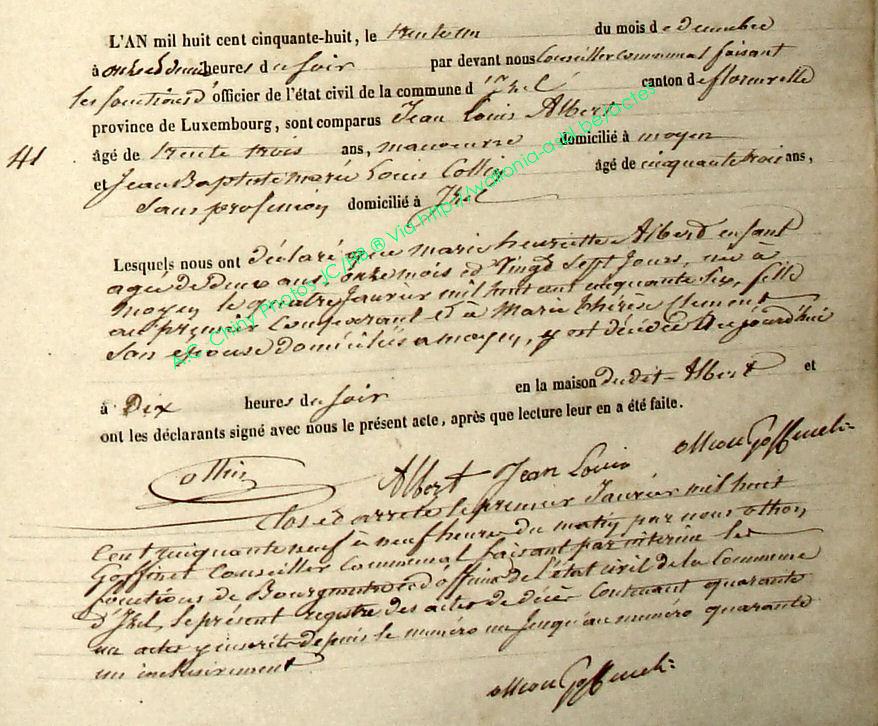 L'AN mil huit cent cinquante-huit, le trente un du mois de decembre
à onze et demie heures du soir par devant nous Conseiller Communal faisant
les fonctions d'officier de l'état civil de la commune d'Izel canton de florenville
province de Luxembourg, sont comparus Jean Louis Albert
41 âgé de trente trois ans, manoeuvre domicilié à moyen
et Jean Baptiste marie Louis Collin âgé de cinquante trois ans,
Sans profession domicilié à Izel
Lesquels nous ont déclaré que marie henriette Albert enfant
agée de deux ans, onze mois et Vingt Sept Jours, née à
moyen le quatre Janvier mil huit cent cinquante Six, fille
au premier Comparant et à Marie thérèse Clement
Son epouse domiciliés a moyen, y est décédée Aujourd'hui
à Dix heures du Soir en la maison dudit Albert et
ont les déclarants signé avec nous le présent acte, après que lecture leur en a été faite.
Collin Albert Jean Louis othon Goffinet
Clos et arreté le premier Janvier mil huit
Cent cinquante neuf à neuf heures du matin par nous othon
Goffinet Conseiller Communal faisant par interim les
fonctions de Bourgmestre et d'officier de l'état civil de la Commune
d'Izel, le présent registre des actes de décès Contenant quarante
un actes y inscrits depuis le numéro un Jusqu'au numéro quarante
un inclusivement
othon Goffinet
A.C. Chiny Photos JC/FB ® Via http://wallonia-asbl.be/actes